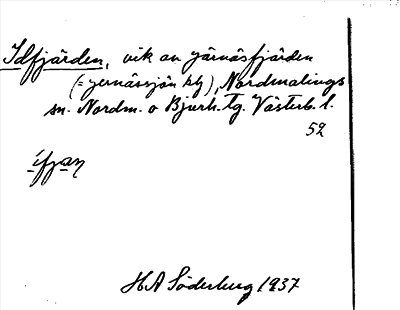 Idfjärden, vik av järnäsfjärden
(= jernässjön kg), Nordmalings
sn. Nordm. o Bjurh. tg. Västerb. l.
52
ifjan
H A Söderberg 1937